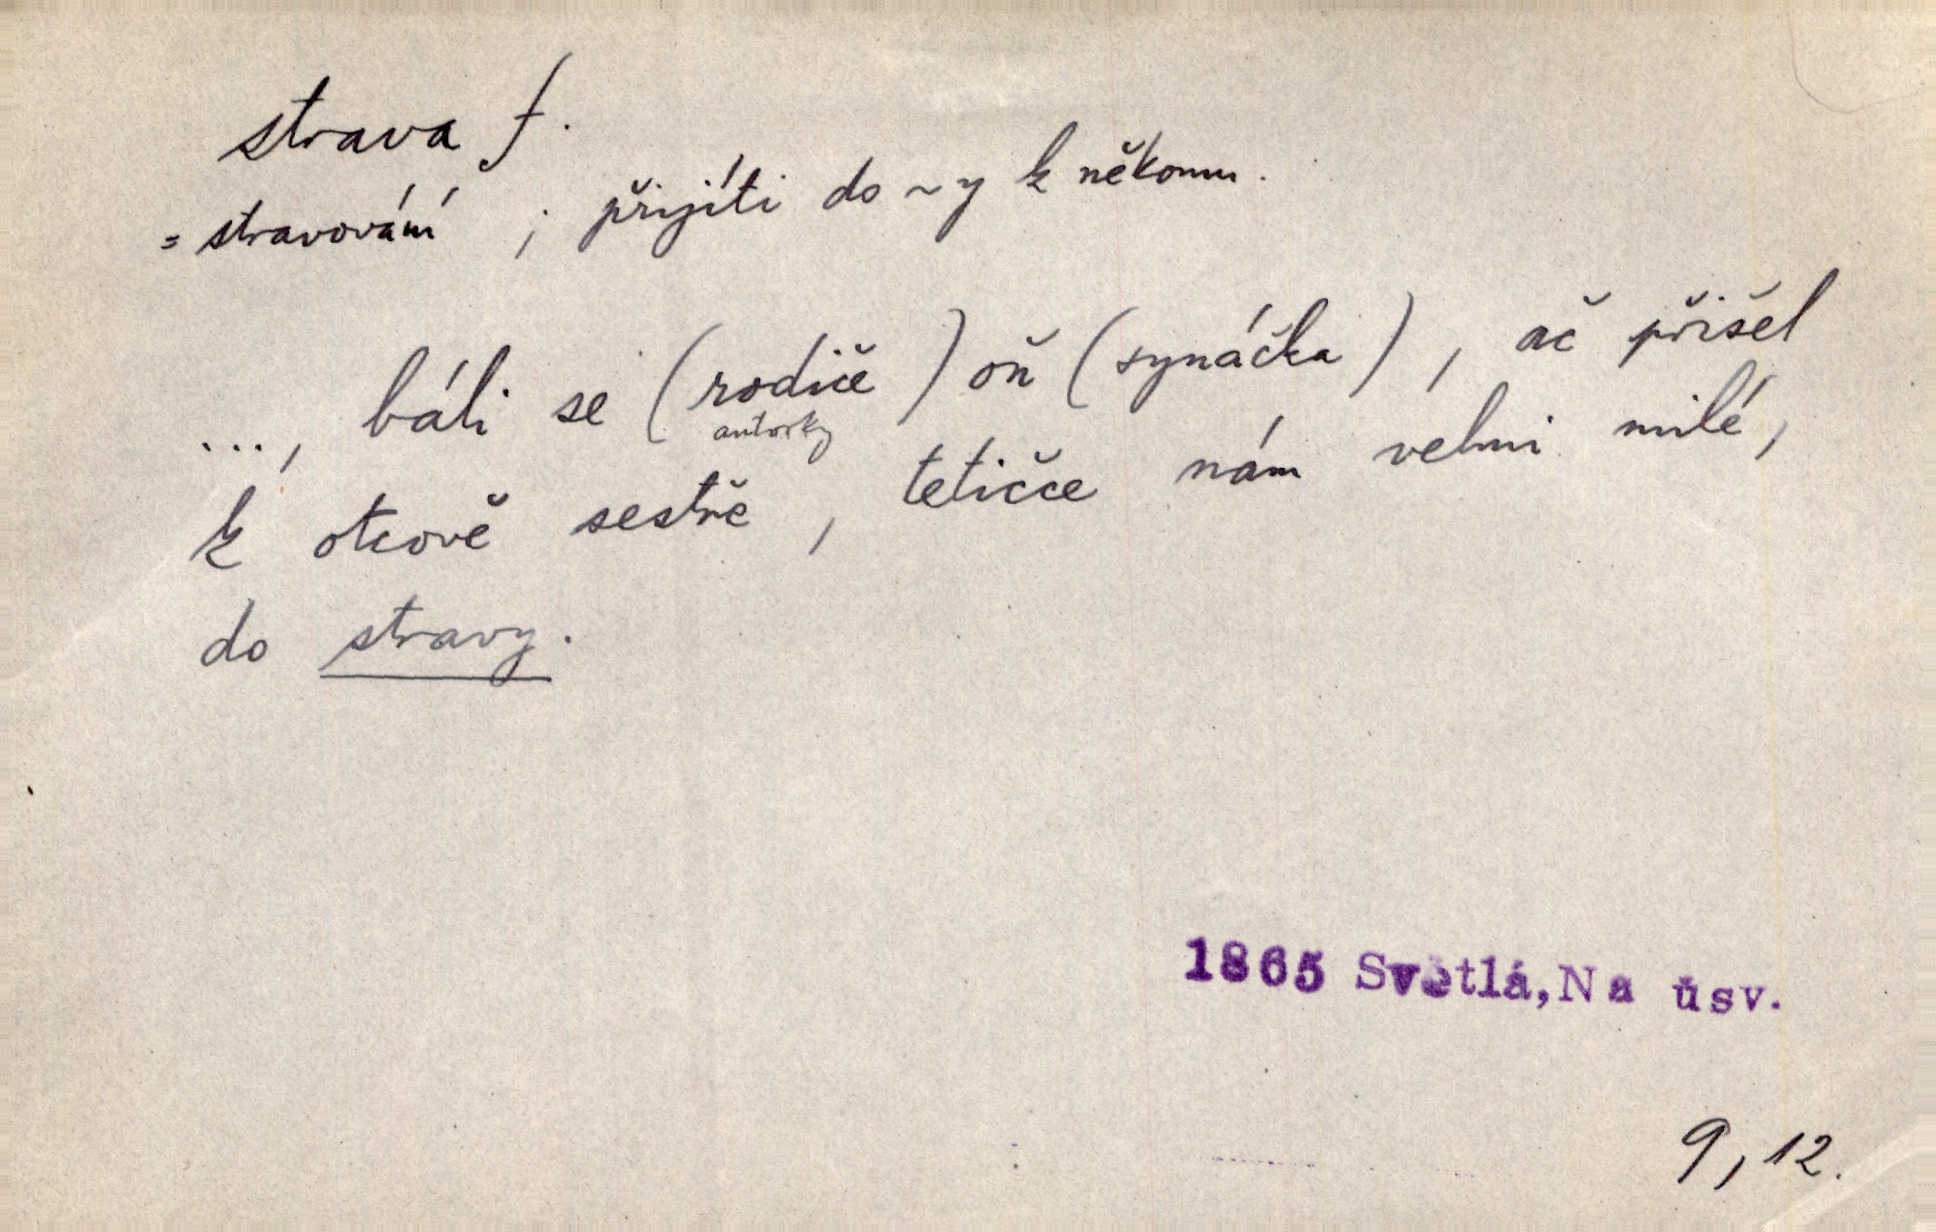 strava f.
= stravování ; přijíti do ~y k někomu.
..., báli se (rodiče) oň (synáčka), ač přišel
autorky
k otcově sestře, tetičce nám velmi milé,
do stravy.
1865 Světlá, Na úsv.
9, 12.